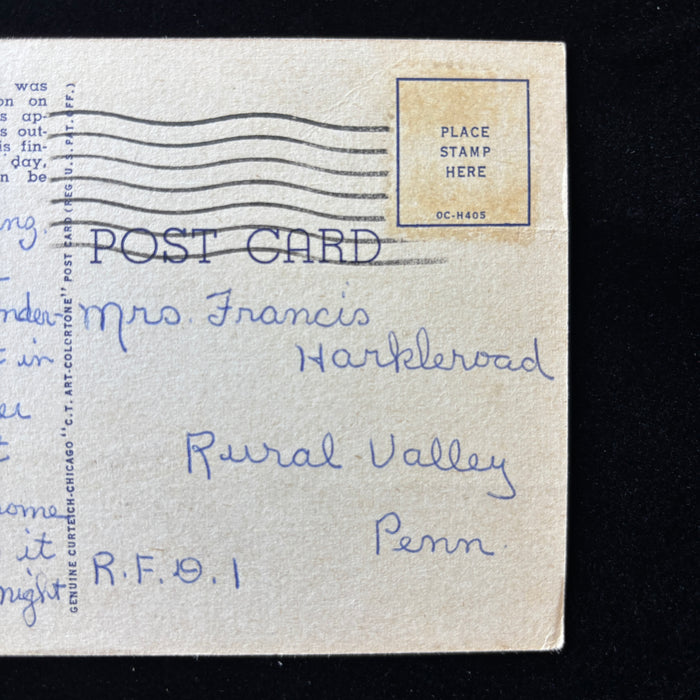 was
on on
s ap-
s out-
is fin-
day,
n be
ng.
nder-
t in
er
t
ome
it
night
GENUINE CURTEICH-CHICAGO "C.T. ART-COLORTONE" POST CARD (REG. U.S. PAT. OFF.)
PLACE
STAMP
HERE
OC-H405
POST CARD
Mrs. Francis
Harkleroad
Rural Valley
Penn.
R.F.D. 1